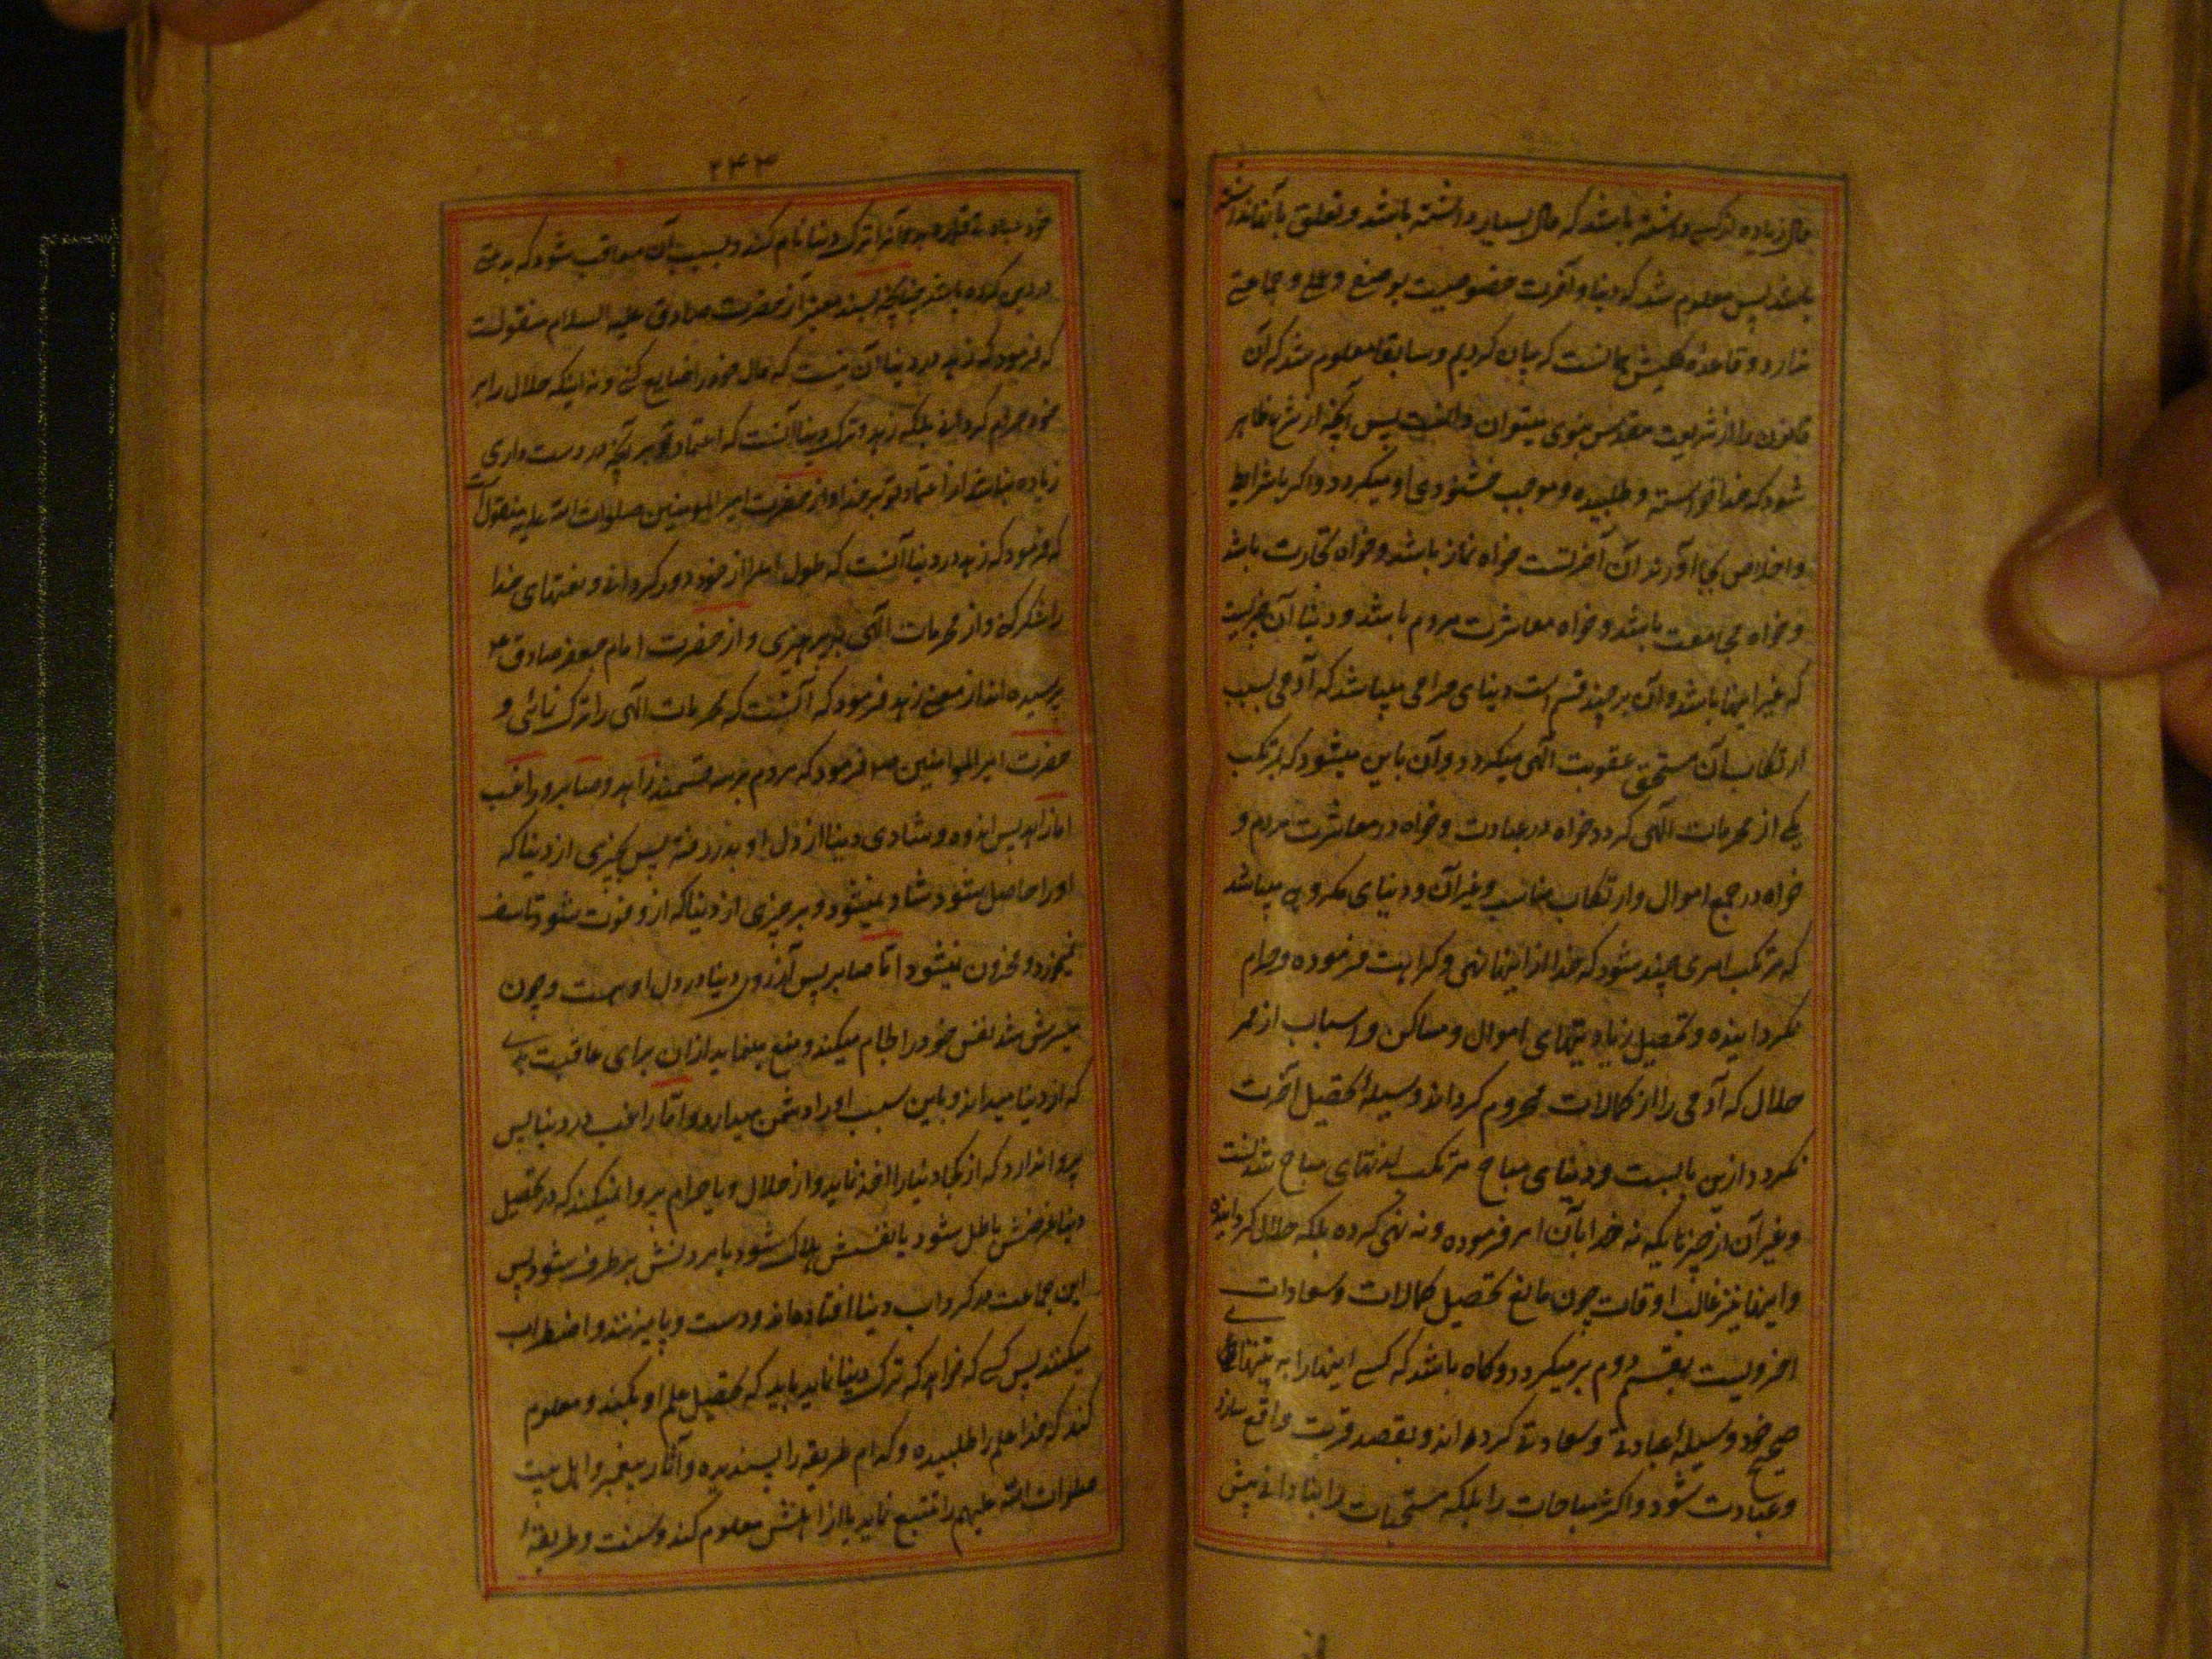 مال زیاده از کسی داشته باشد که مال بسیار داشته باشد و تعلق بآنها نداشته
باشد پس معلوم شد که دنیا و آخرت خصوصیت بوضع و عملی و جماعتی
ندارد و قاعده کلیش همانست که بیان کردیم و سابقا معلوم شد که آن
قانون را از شریعت مقدس نبوی میتوان دانست پس آنچه از شرع ظاهر
شود که خدا خواسته و طلبیده و موجب خشنودی او میگردد و اگر باشرایط
و اخلاص بجا آورند آن آخرتست خواه نماز باشد و خواه تجارت باشد
و خواه مجامعت باشد و خواه معاشرت مردم باشد و دنیا آن چیزیست
که غیر اینها باشد و آن بر چند قسم است دنیای حرامی میباشد که آدمی بسبب
ارتکاب آن مستحق عقوبت الهی میگردد و آن باین میشود که مرتکب
یکی از محرمات الهی گردد خواه در عبادت و خواه در معاشرت مردم و
خواه در جمع اموال و ارتکاب مناسب و غیر آن و دنیای مکروهی میباشد
که مرتکب امری چند شود که خدا از اینها نهی کراهت فرموده و حرام
نگردانیده و تحصیل زیادتیهای اموال و مساکن و اسباب از ممر
حلال که آدمی را از کمالات محروم گرداند و وسیله تحصیل آخرت
نگردد ازین بابست و دنیای مباح مرتکب لذتهای مباح شدنست
و غیر آن از چیزهائیکه نه خدا بآن امر فرموده و نه نهی کرده بلکه حلال گردانیده
و اینها نیز غالب اوقات چون مانع تحصیل کمالات و سعادات
اخرویست بقسم دوم برمیگردد و گاه باشد که کسی اینها را به نیتهای
صحیح خود وسیله عبادت و سعادت گرداند و بقصد قربت واقع سازد
و عبادت شود و اکثر مباحات را بلکه مستحبات را بنادانی پیش
۲۴۳
خود عبادتی قرار دهد و آنرا ترک دنیا نام کند و بسبب آن معاقب شود که بدعتی
در دین کرده باشد چنانچه بسند معتبر از حضرت صادق علیه السلام منقولست
که فرمود که زهد در دنیا آن نیست که مال خود را ضایع کنی و نه اینکه حلال را بر
خود حرام گردانی بلکه زهد و ترک دنیا آنست که اعتماد تو بر آنچه در دست داری
زیاده نباشد از اعتماد تو بر خدا و از حضرت امیر المومنین صلوات الله علیه منقول است
که فرمود که زهد در دنیا آنست که طول امل را از خود دور گردانی و نعمتهای خدا
را شکر کنی و از محرمات الهی بپرهیزی و از حضرت امام جعفر صادق ع
پرسیده اند از معنی زهد فرمود که آنست که محرمات الهی را ترک نمائی و
حضرت امیر المومنین ع فرمود که مردم بر سه قسمند زاهد و صابر و راغب
اما زاهد پس اندوه و شادی دنیا از دل او بدر رفته پس بچیزی از دنیا که
او را حاصل شود شاد نمیشود و بر چیزی از دنیا که ازو فوت شود تاسف
نمیخورد و محزون نمیشود اما صابر پس آرزوی دنیا در دل او هست و چون
میسرش شد نفس خود را لجام میکند و منع مینماید ازان برای عاقبت بدی
که از دنیا میداند و باین سبب او را دشمن میدارد و اما راغب در دنیا پس
پروا ندارد که از کجا دنیا را اخذ نماید و از حلال و یا حرام پروا نمیکند که در تحصیل
دنیا عرضش باطل شود یا نفسش هلاک شود یا مردنش برطرف شود پس
این جماعت در گرداب دنیا افتاده اند و دست و پا میزنند و اضطراب
میکنند پس کسی که خواهد که ترک دنیا نماید باید که تحصیل علم او بکند و معلوم
کند که خدا علم را طلبیده و کدام طریقه را پسندیده و آثار پیغمبر و اهل بیت
صلوات الله علیهم را تتبع نماید یا از اهلش معلوم کند و سنت و طریقه